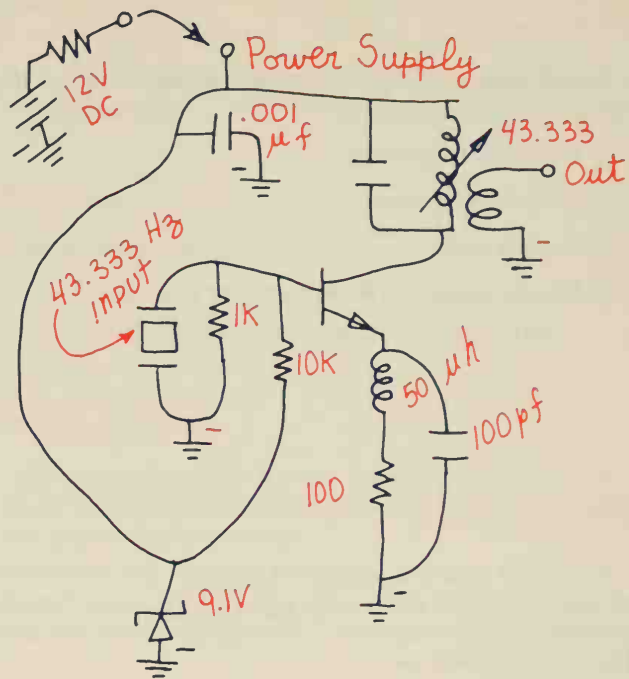 Power Supply
12V
DC
.001
μf
43.333
Out
43.333 Hz
input
1K
10K
50 μh
100pf
100
9.1V